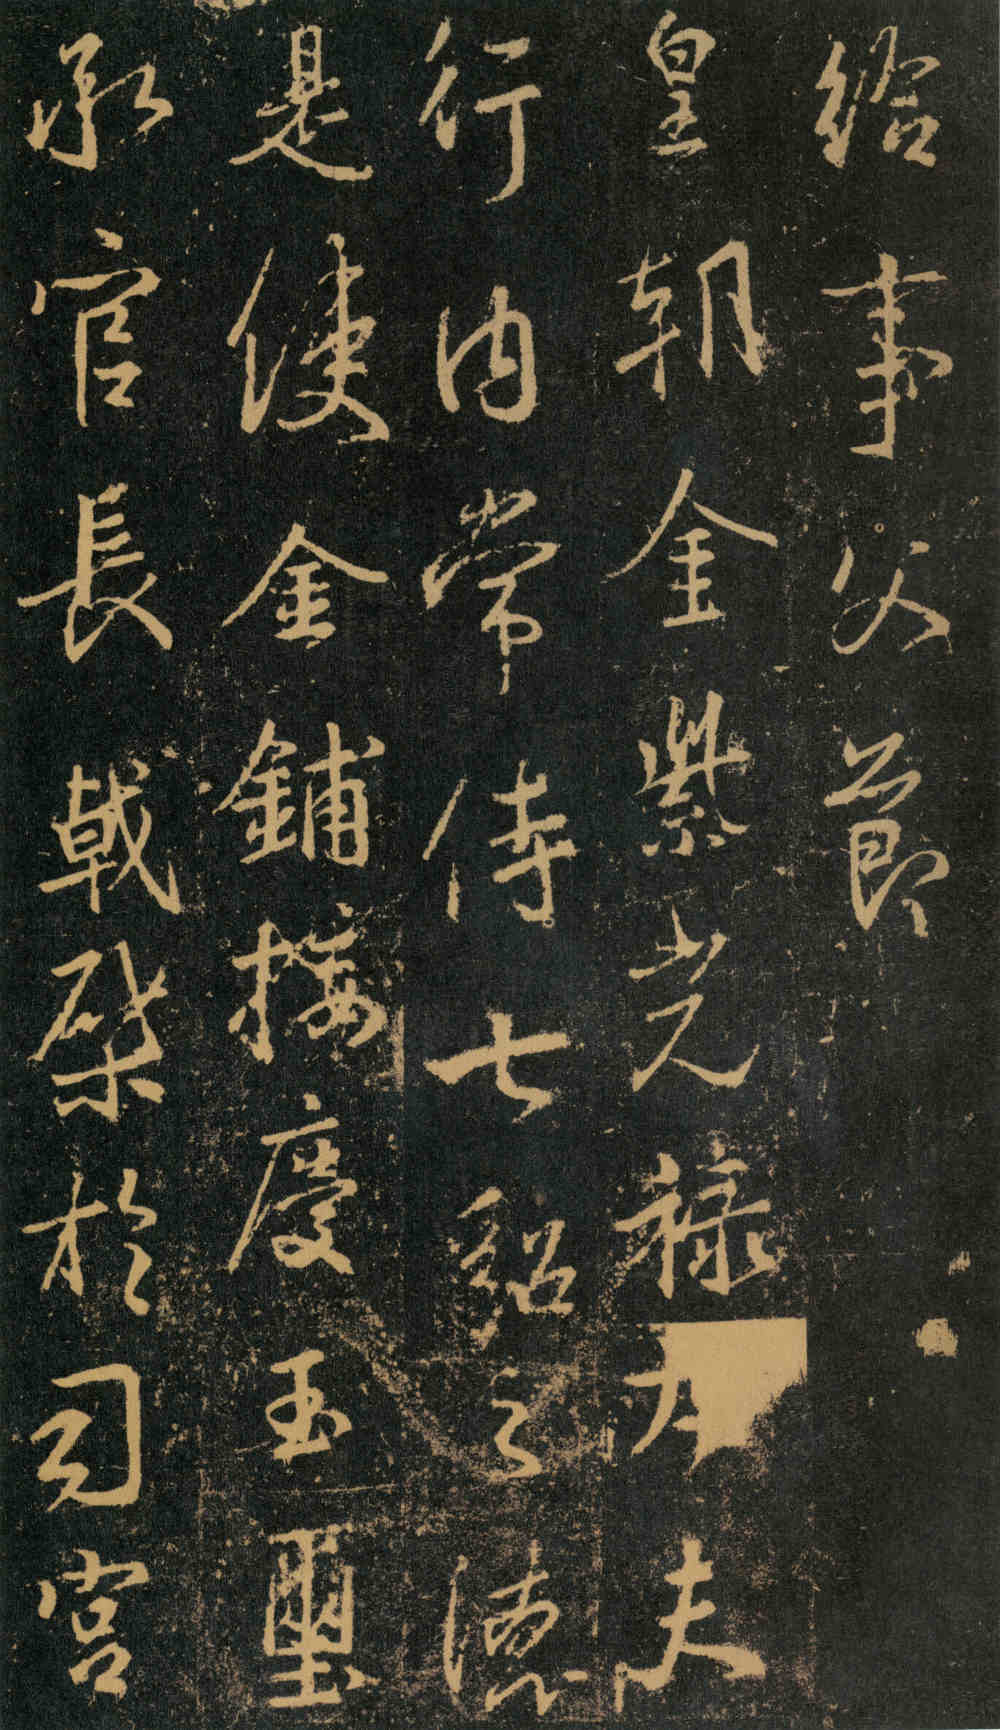 給事父節
皇朝金紫光祿大夫
行内常侍七貂之德
是使金鋪接慶玉璽
承官長戟棨於司宫